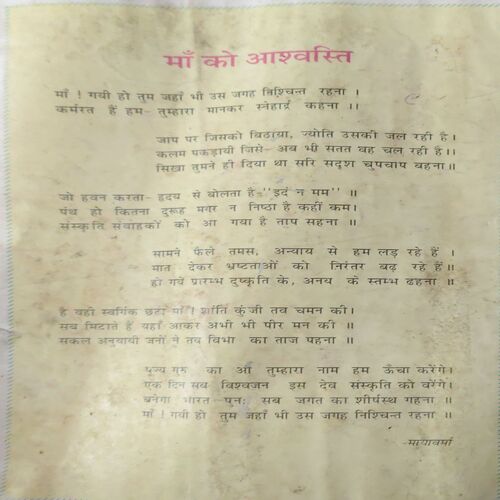 माँ को आश्वस्ति
माँ ! गयी हो तुम जहाँ भी उस जगह निश्चिन्त रहना ।
कर्मरत हैं हम- तुम्हारा मानकर स्नेहार्द्र कहना ।।
जाप पर जिसको बिठाया, ज्योति उसकी जल रही है।
कलम पकड़ायी जिसे- अब भी सतत वह चल रही है।।
सिखा तुमने ही दिया था सरि सदृश चुपचाप बहना॥
जो हवन करता- हृदय से बोलता है-"इदं न मम" ॥
पंथ हो कितना दुरूह मगर न निष्ठा है कहीं कम।
संस्कृति संवाहकों को आ गया है ताप सहना ॥
सामने फैले तमस, अन्याय से हम लड़ रहे हैं ।
मात देकर भ्रष्टताओं को निरंतर बढ़ रहे हैं॥
हो गये प्रारम्भ दुष्कृति के, अनय के स्तम्भ ढहना ॥
है वही स्वर्गिक छटा माँ ! शांति कुंजी तव चमन की।
सब मिटाते हैं यहाँ आकर अभी भी पीर मन की ॥
सकल अनुयायी जनों ने तव विभा का ताज पहना ॥
पूज्य गुरु का औ तुम्हारा नाम हम ऊँचा करेंगे।
एक दिन सब विश्वजन इस देव संस्कृति को वरेंगे।
बनेगा भारत- पुनः सब जगत का शीर्षस्थ गहना ॥
माँ ! गयी हो तुम जहाँ भी उस जगह निश्चिन्त रहना ॥
-मायावर्मा